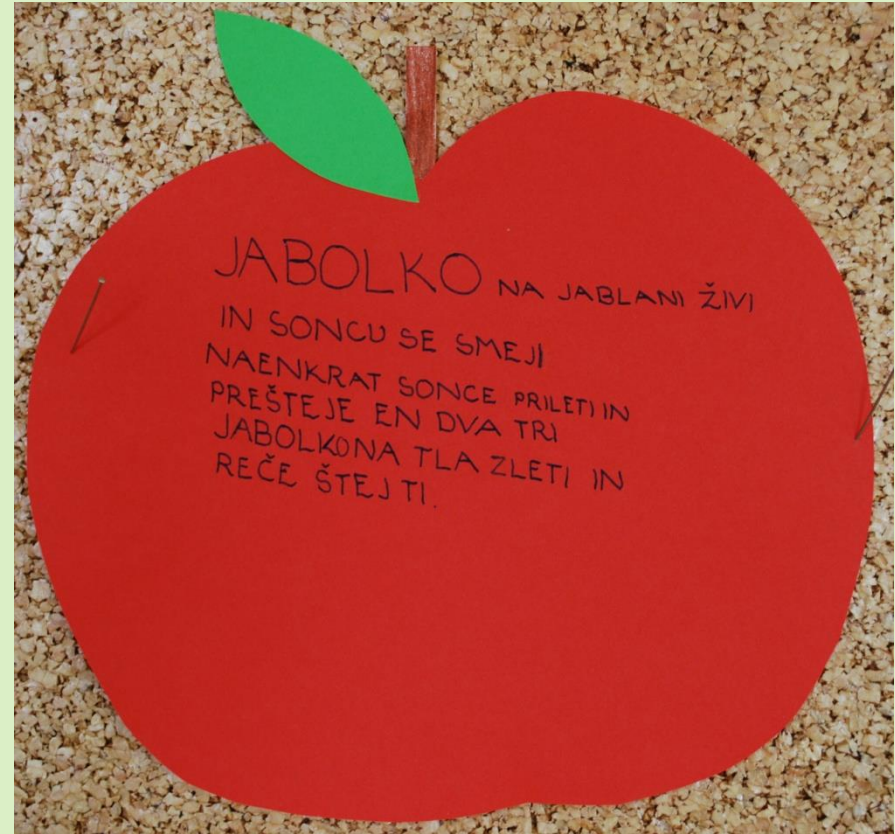 JABOLKO NA JABLANI ŽIVI
IN SONCU SE SMEJI
NAENKRAT SONCE PRILETI IN
PREŠTEJE EN DVA TRI
JABOLKONA TLA ZLETI IN
REČE ŠTEJ TI.